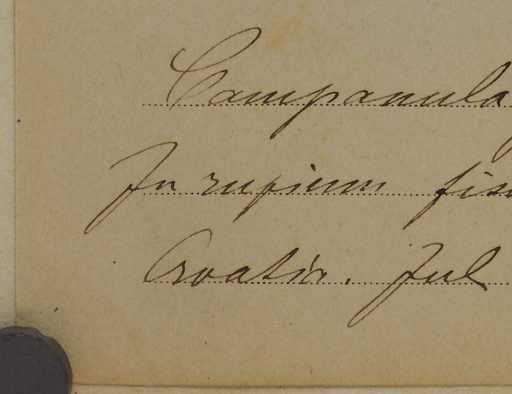 Campanula
In rupium fis
Croatia. Jul